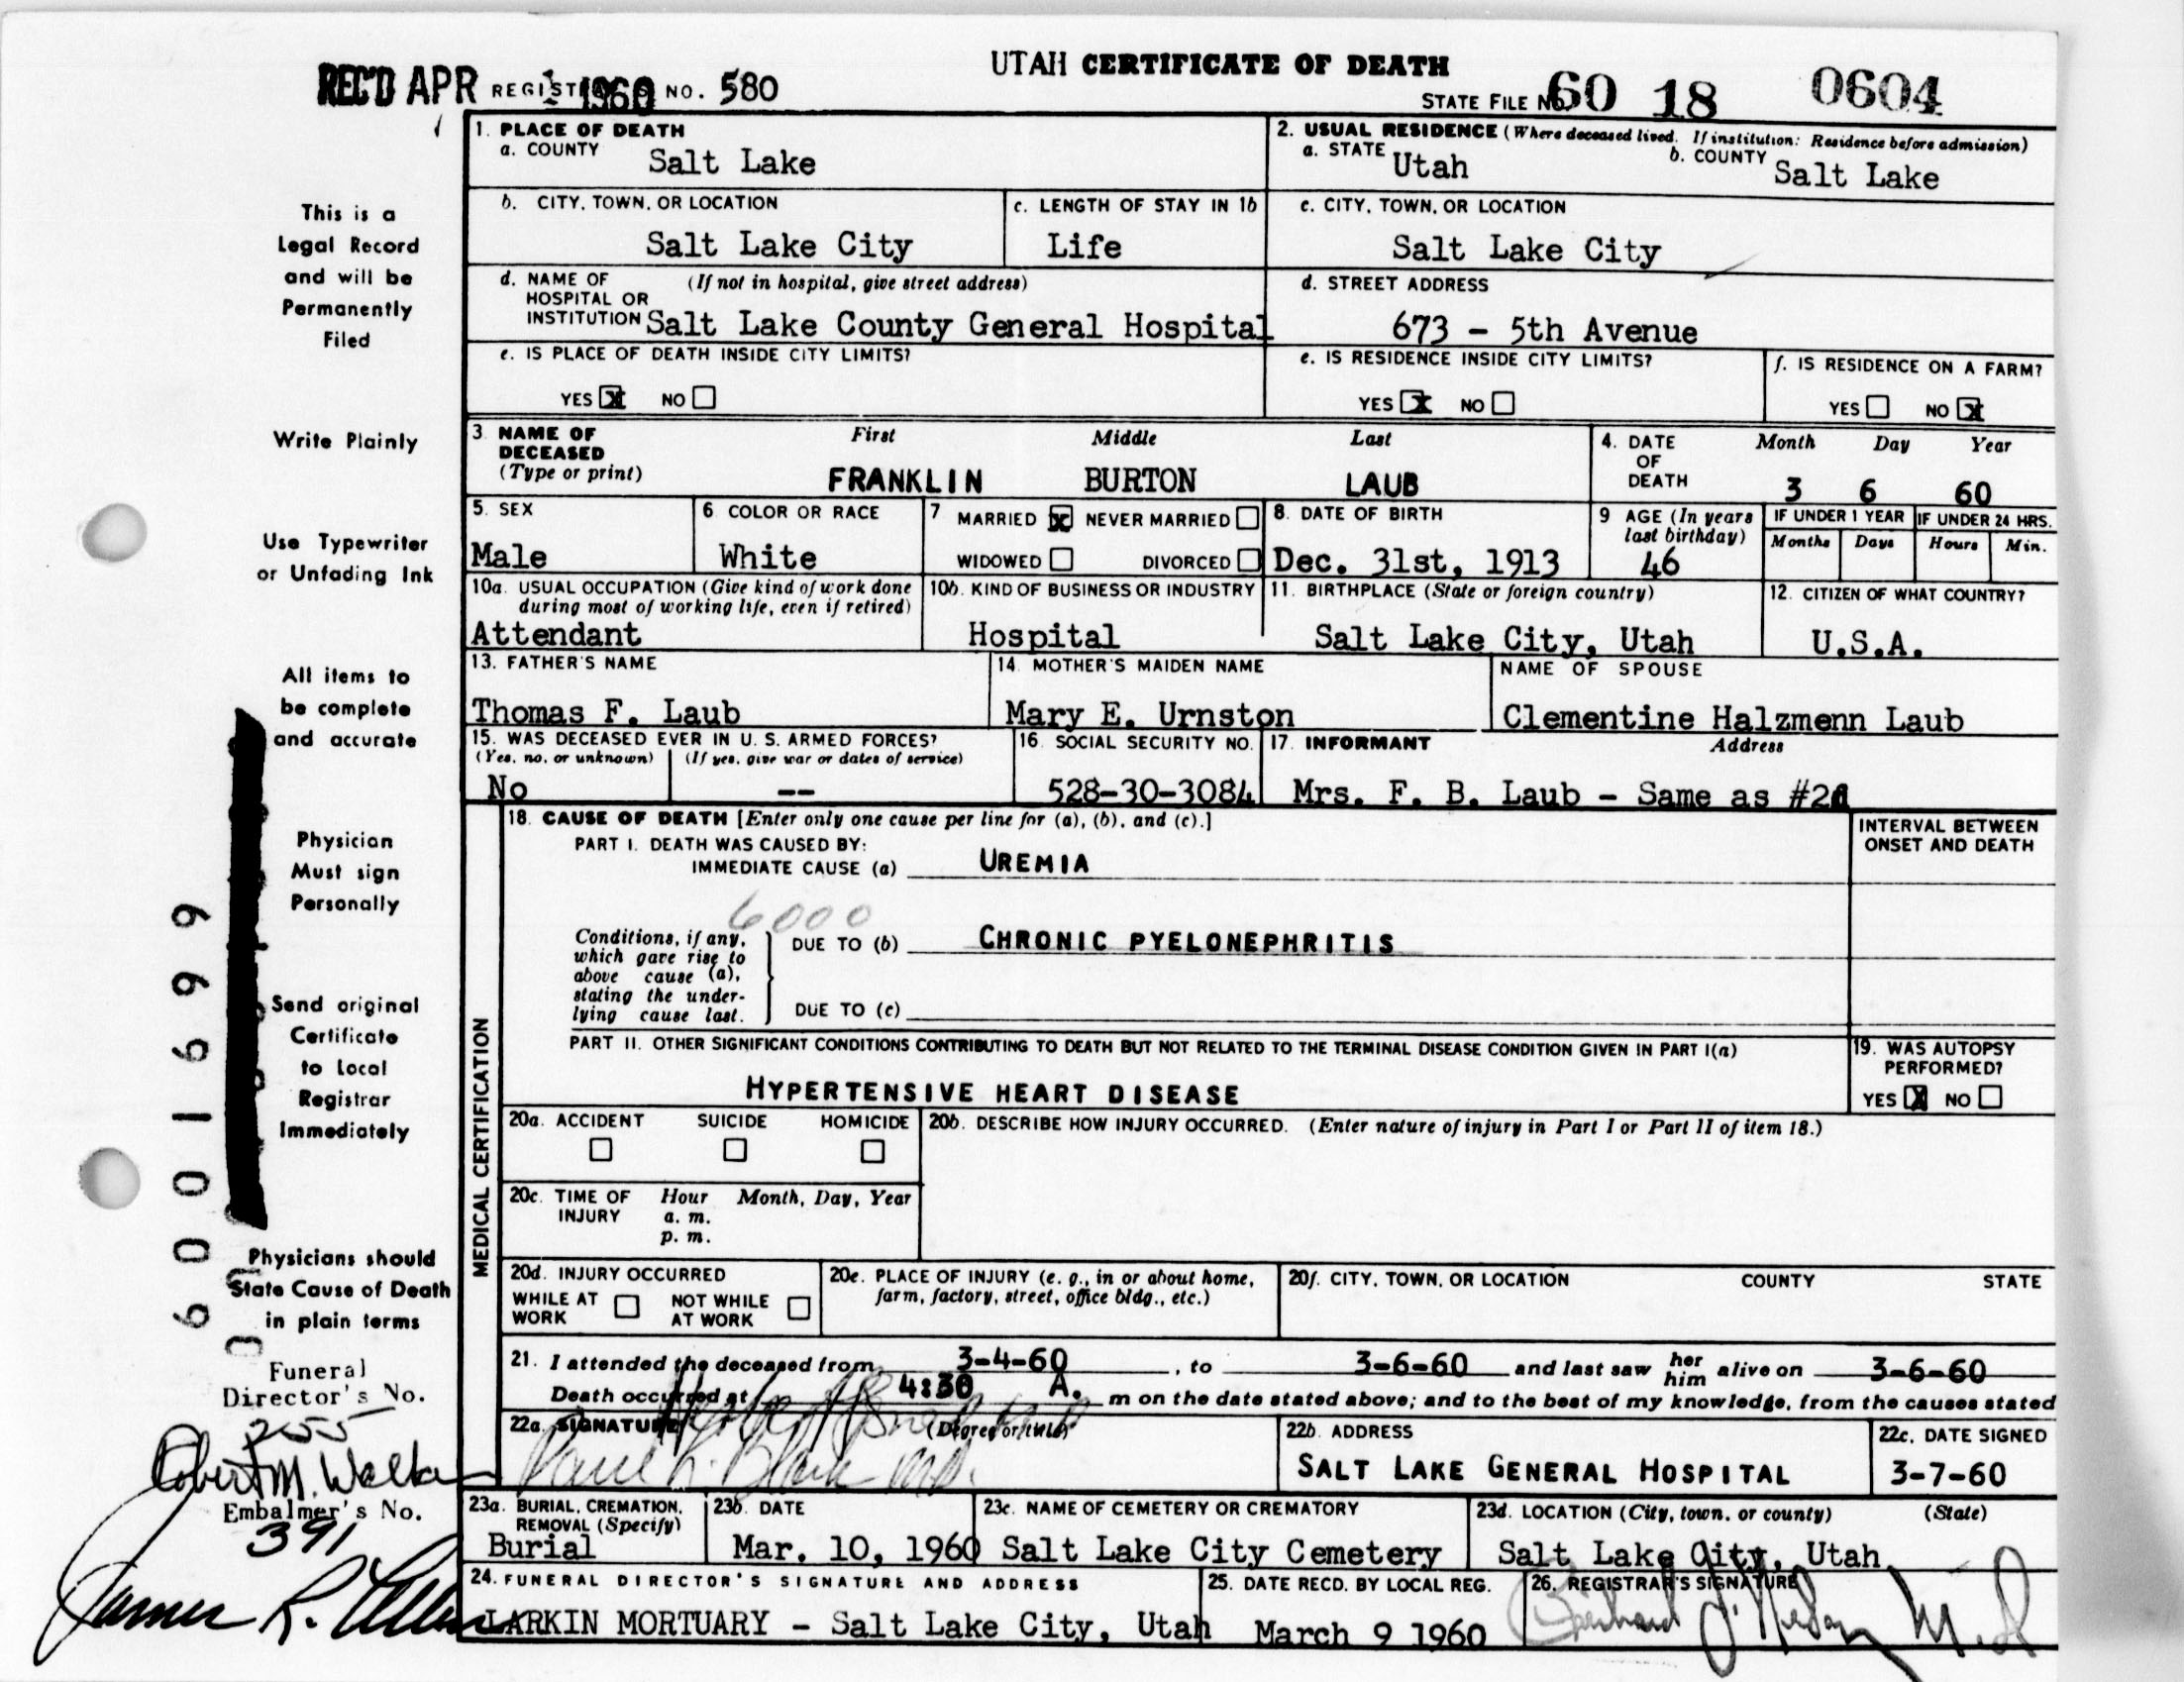 UTAH CERTIFICATE OF DEATH
REC'D APR 1 1960 REGISTRAR'S NO. 580
STATE FILE NO. 60 18 0604
1. PLACE OF DEATH
a. COUNTY Salt Lake
2. USUAL RESIDENCE (Where deceased lived. If institution: Residence before admission)
a. STATE Utah b. COUNTY Salt Lake
b. CITY, TOWN, OR LOCATION Salt Lake City
c. LENGTH OF STAY IN 1b Life
c. CITY, TOWN, OR LOCATION Salt Lake City
d. NAME OF HOSPITAL OR INSTITUTION (If not in hospital, give street address) Salt Lake County General Hospital
d. STREET ADDRESS 673 - 5th Avenue
e. IS PLACE OF DEATH INSIDE CITY LIMITS?
YES X NO
e. IS RESIDENCE INSIDE CITY LIMITS?
YES X NO
f. IS RESIDENCE ON A FARM?
YES NO X
3. NAME OF DECEASED (Type or print)
First Middle Last
FRANKLIN BURTON LAUB
4. DATE OF DEATH Month Day Year
3 6 60
5. SEX Male
6 COLOR OR RACE White
7 MARRIED X NEVER MARRIED
WIDOWED DIVORCED
8. DATE OF BIRTH Dec. 31st, 1913
9 AGE (In years last birthday) 46
IF UNDER 1 YEAR Months Days
IF UNDER 24 HRS. Hours Min.
10a. USUAL OCCUPATION (Give kind of work done during most of working life, even if retired)
Attendant
10b. KIND OF BUSINESS OR INDUSTRY Hospital
11. BIRTHPLACE (State or foreign country) Salt Lake City, Utah
12. CITIZEN OF WHAT COUNTRY? U.S.A.
13. FATHER'S NAME Thomas F. Laub
14. MOTHER'S MAIDEN NAME Mary E. Urnston
NAME OF SPOUSE Clementine Halzmenn Laub
15. WAS DECEASED EVER IN U. S. ARMED FORCES?
(Yes, no, or unknown) (If yes, give war or dates of service)
No --
16. SOCIAL SECURITY NO. 528-30-3084
17. INFORMANT Address
Mrs. F. B. Laub - Same as #2d
MEDICAL CERTIFICATION
18. CAUSE OF DEATH [Enter only one cause per line for (a), (b), and (c).]
INTERVAL BETWEEN ONSET AND DEATH
PART I. DEATH WAS CAUSED BY:
IMMEDIATE CAUSE (a) UREMIA
6000
Conditions, if any, which gave rise to above cause (a), stating the underlying cause last.
DUE TO (b) CHRONIC PYELONEPHRITIS
DUE TO (c)
PART II. OTHER SIGNIFICANT CONDITIONS CONTRIBUTING TO DEATH BUT NOT RELATED TO THE TERMINAL DISEASE CONDITION GIVEN IN PART I(a)
HYPERTENSIVE HEART DISEASE
19. WAS AUTOPSY PERFORMED?
YES X NO
20a. ACCIDENT SUICIDE HOMICIDE
20b. DESCRIBE HOW INJURY OCCURRED. (Enter nature of injury in Part I or Part II of item 18.)
20c. TIME OF INJURY Hour Month, Day, Year
a. m.
p. m.
20d. INJURY OCCURRED
WHILE AT WORK NOT WHILE AT WORK
20e. PLACE OF INJURY (e. g., in or about home, farm, factory, street, office bldg., etc.)
20f. CITY, TOWN, OR LOCATION COUNTY STATE
21. I attended the deceased from 3-4-60, to 3-6-60 and last saw her him alive on 3-6-60
Death occurred at 4:30 A. m on the date stated above; and to the best of my knowledge, from the causes stated
22a. SIGNATURE (Degree or title)
Paul L. Black MD.
22b. ADDRESS SALT LAKE GENERAL HOSPITAL
22c. DATE SIGNED 3-7-60
23a. BURIAL, CREMATION, REMOVAL (Specify) Burial
23b. DATE Mar. 10, 1960
23c. NAME OF CEMETERY OR CREMATORY Salt Lake City Cemetery
23d. LOCATION (City, town, or county) (State) Salt Lake City, Utah
24. FUNERAL DIRECTOR'S SIGNATURE AND ADDRESS
LARKIN MORTUARY - Salt Lake City, Utah
25. DATE RECD. BY LOCAL REG. March 9 1960
26. REGISTRAR'S SIGNATURE
This is a
Legal Record
and will be
Permanently
Filed
Write Plainly
Use Typewriter
or Unfading Ink
All items to
be complete
and accurate
Physician
Must sign
Personally
Send original
Certificate
to Local
Registrar
Immediately
Physicians should
State Cause of Death
in plain terms
Funeral
Director's No.
255
Robert M. Walker
Embalmer's No.
391
James R. Allen
6001699